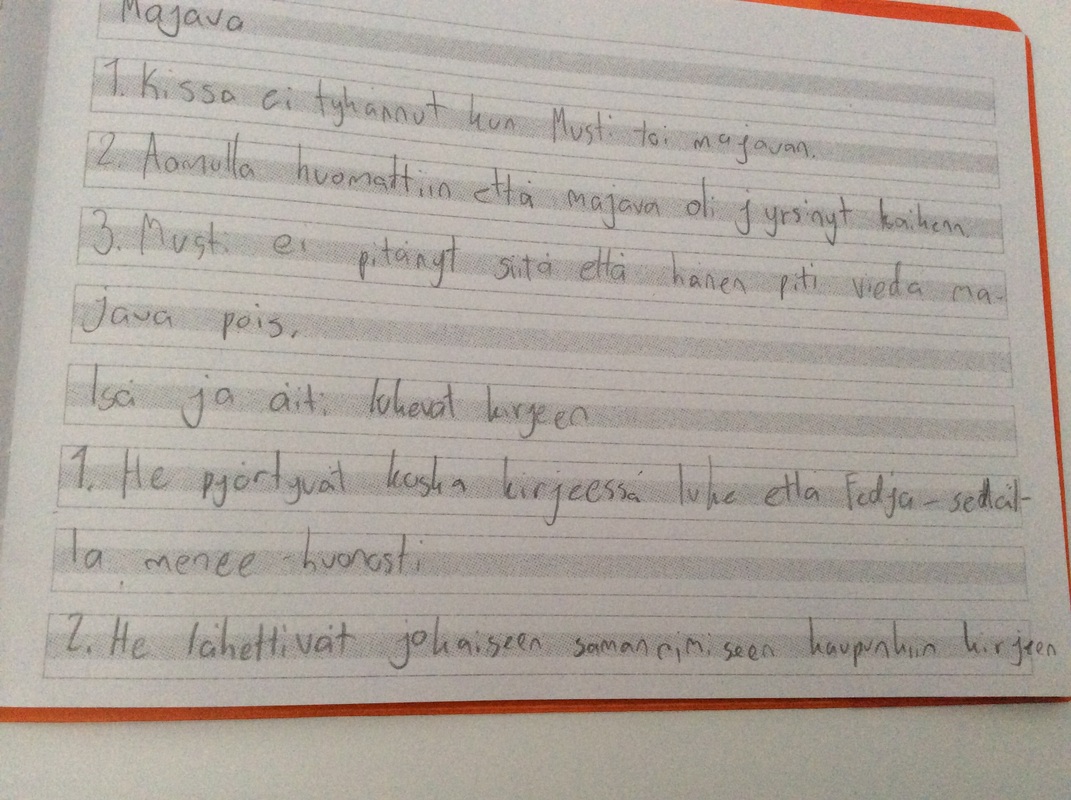 Majava
1. Kissa ei tyhännut kun Musti toi majavan.
2. Aamulla huomattiin että majava oli jyrsinyt kaiken.
3. Musti ei pitänyt siitä että hänen piti viedä ma-
java pois.
Isä ja äiti lukevat kirjeen
1. He pyörtyvät koska kirjeessä luke että Fedja-sedäl-
lä menee huonosti
2. He lähettivät jokaiseen samannimiseen kaupunkiin kirjeen